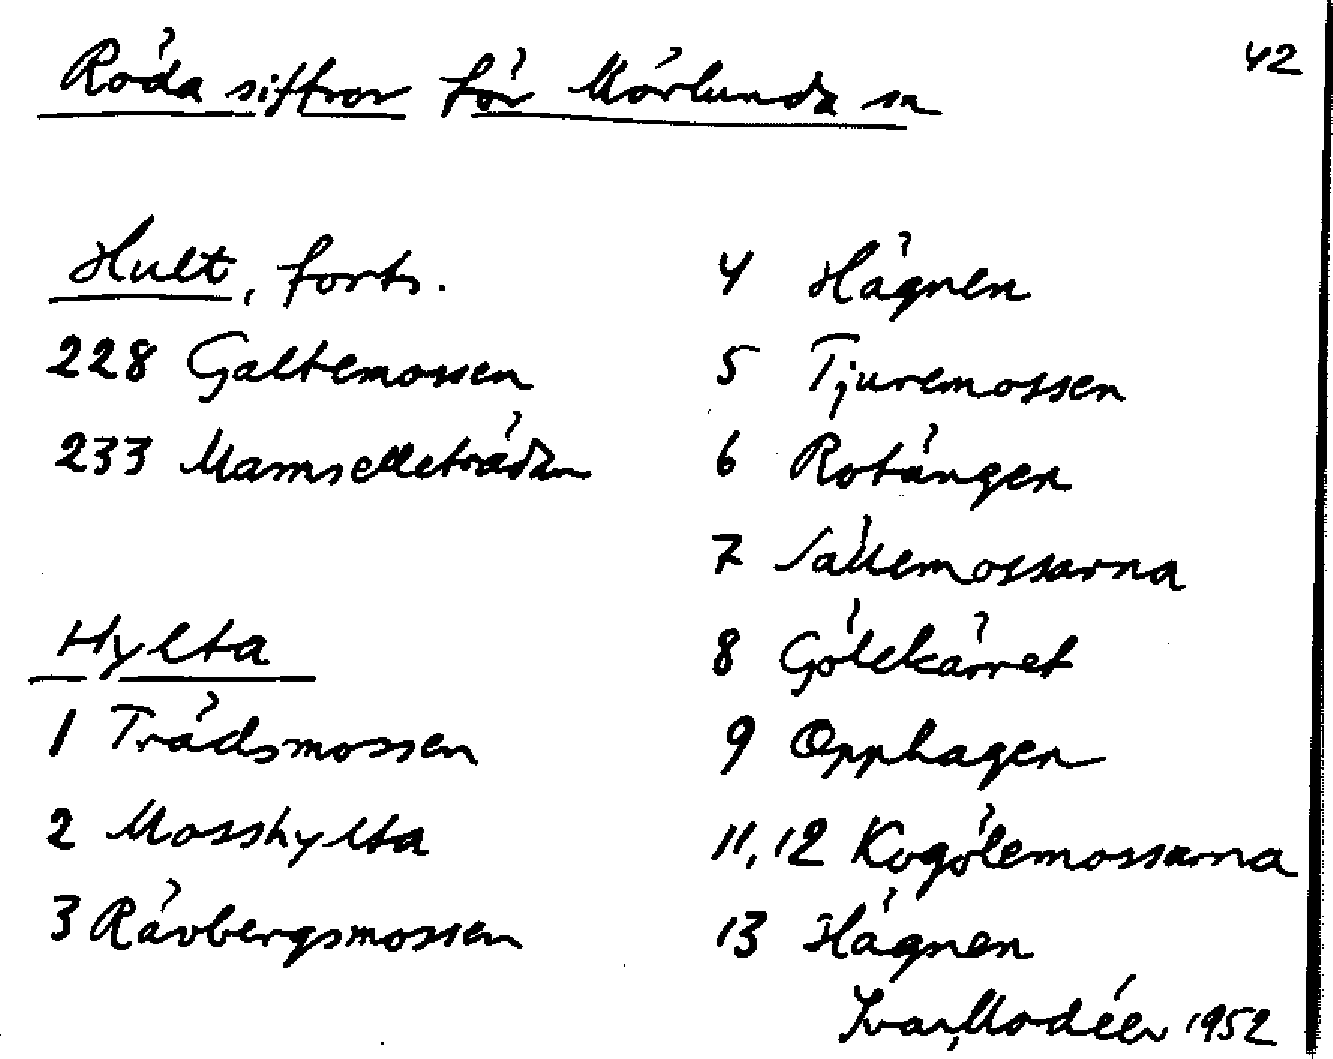 42
Röda siffror för Mörlunda sn
Hult, forts.
228 Galtemossen
233 Mamselleträdan
Hylta
1 Trädsmossen
2 Mosshylta
3 Rävbergsmossen
4 Hägnen
5 Tjuremossen
6 Rotängen
7 Sällemossarna
8 Gölekärret
9 Opphagen
11, 12 Kogölemossarna
13 Hägnen
Ivar Modéer 1952